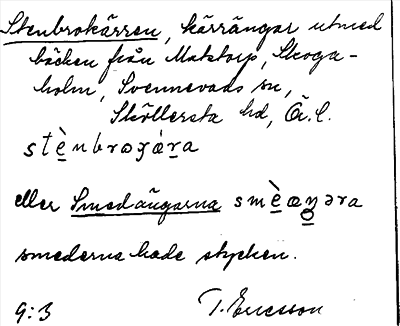 Stenbrokärren, kärrängar utmed
bäcken från Matstorp, Skoga-
holm, Svennevads sn,
Sköllersta hd, Ö.l.
stènbroʒæ̀ra
eller Smedängarna smèæŋəra
smederna hade stycken.
9:3 T. Ericsson